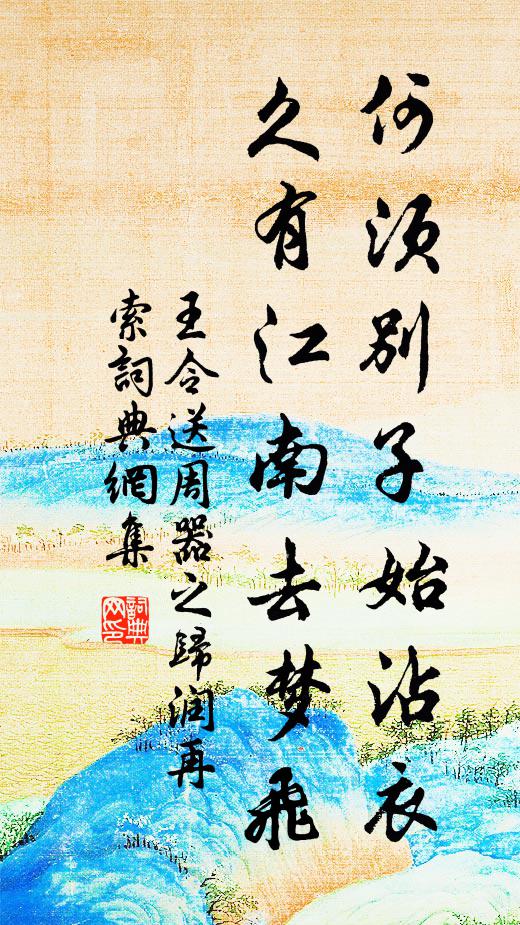 何须别子始沾衣
久有江南去梦飛
王令送周器之歸润再
索詞典網集
詞典
网印